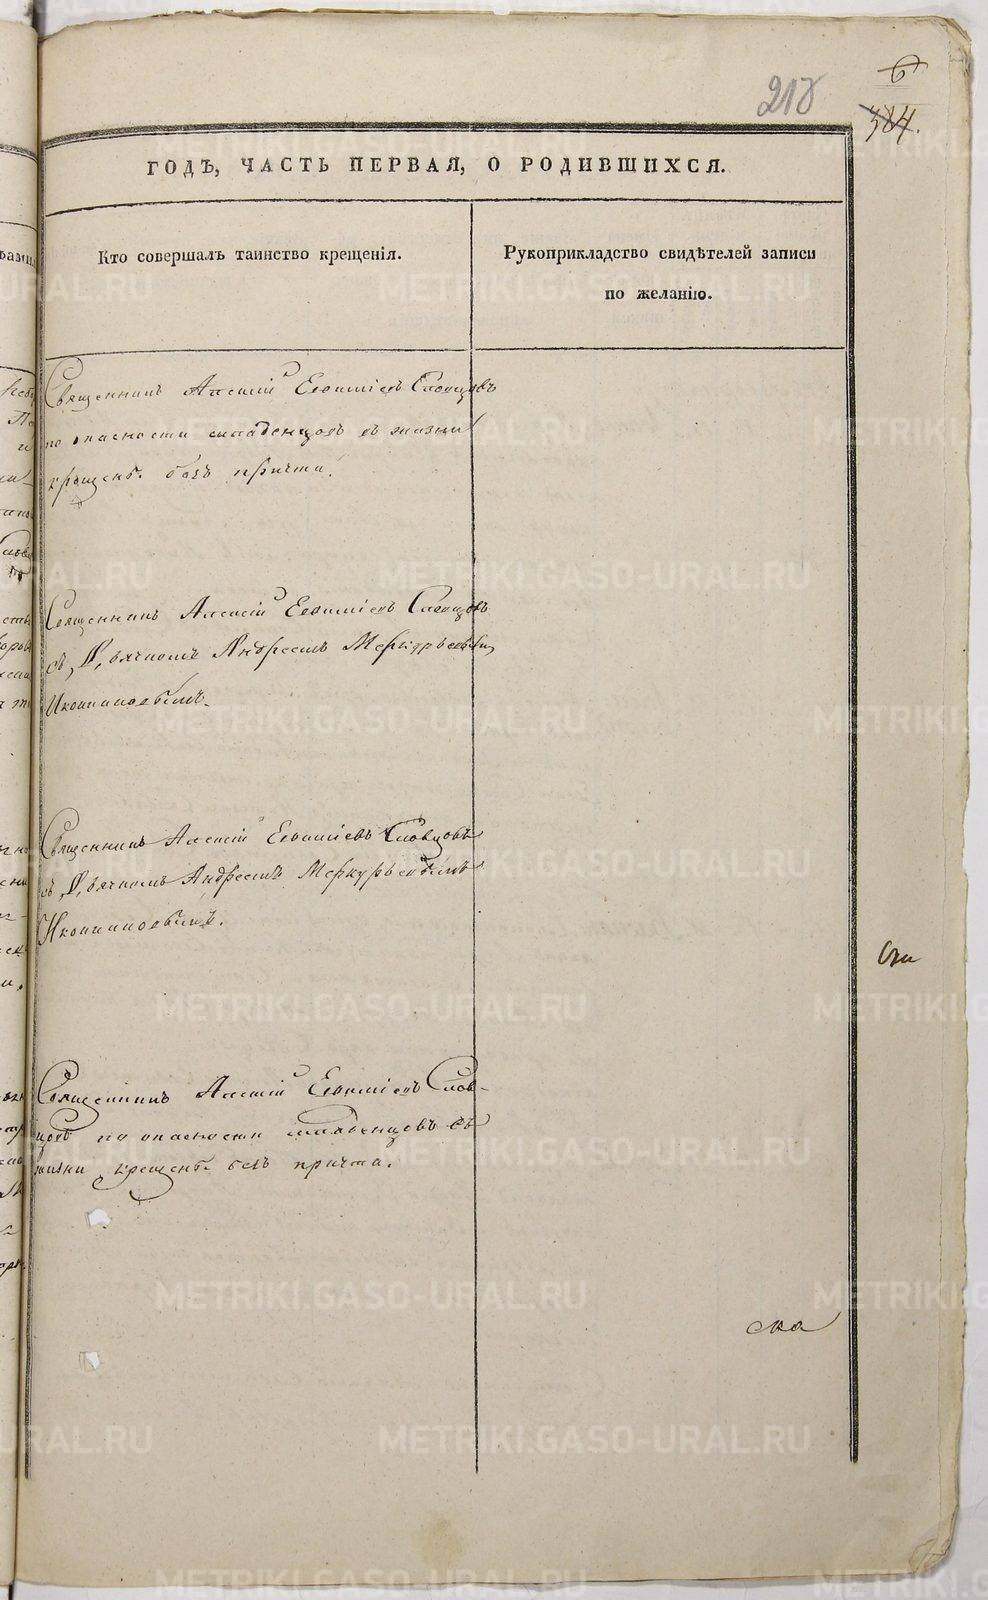 218
6
384.
ГОДЪ, ЧАСТЬ ПЕРВАЯ, О РОДИВШИХСЯ.
Кто совершалъ таинство крещенія.
Рукоприкладство свидѣтелей записи
по желанію.
Священникъ Алексій Евѳиміевъ Словцовъ
по опасности младенцовъ въ жизни
крещенъ безъ причта.
Священникъ Алексій Евѳиміевъ Словцовъ
съ Дьячкомъ Андреемъ Меркурьевымъ
Иконниковымъ.
Священникъ Алексій Евѳиміевъ Словцовъ
съ Дьячкомъ Андреемъ Меркурьевымъ
Иконниковымъ.
Священникъ Алексій Евѳиміевъ Слов-
цовъ по опасности младенцовъ въ
жизни крещенъ безъ причта.
ска
METRIKI.GASO-URAL.RU